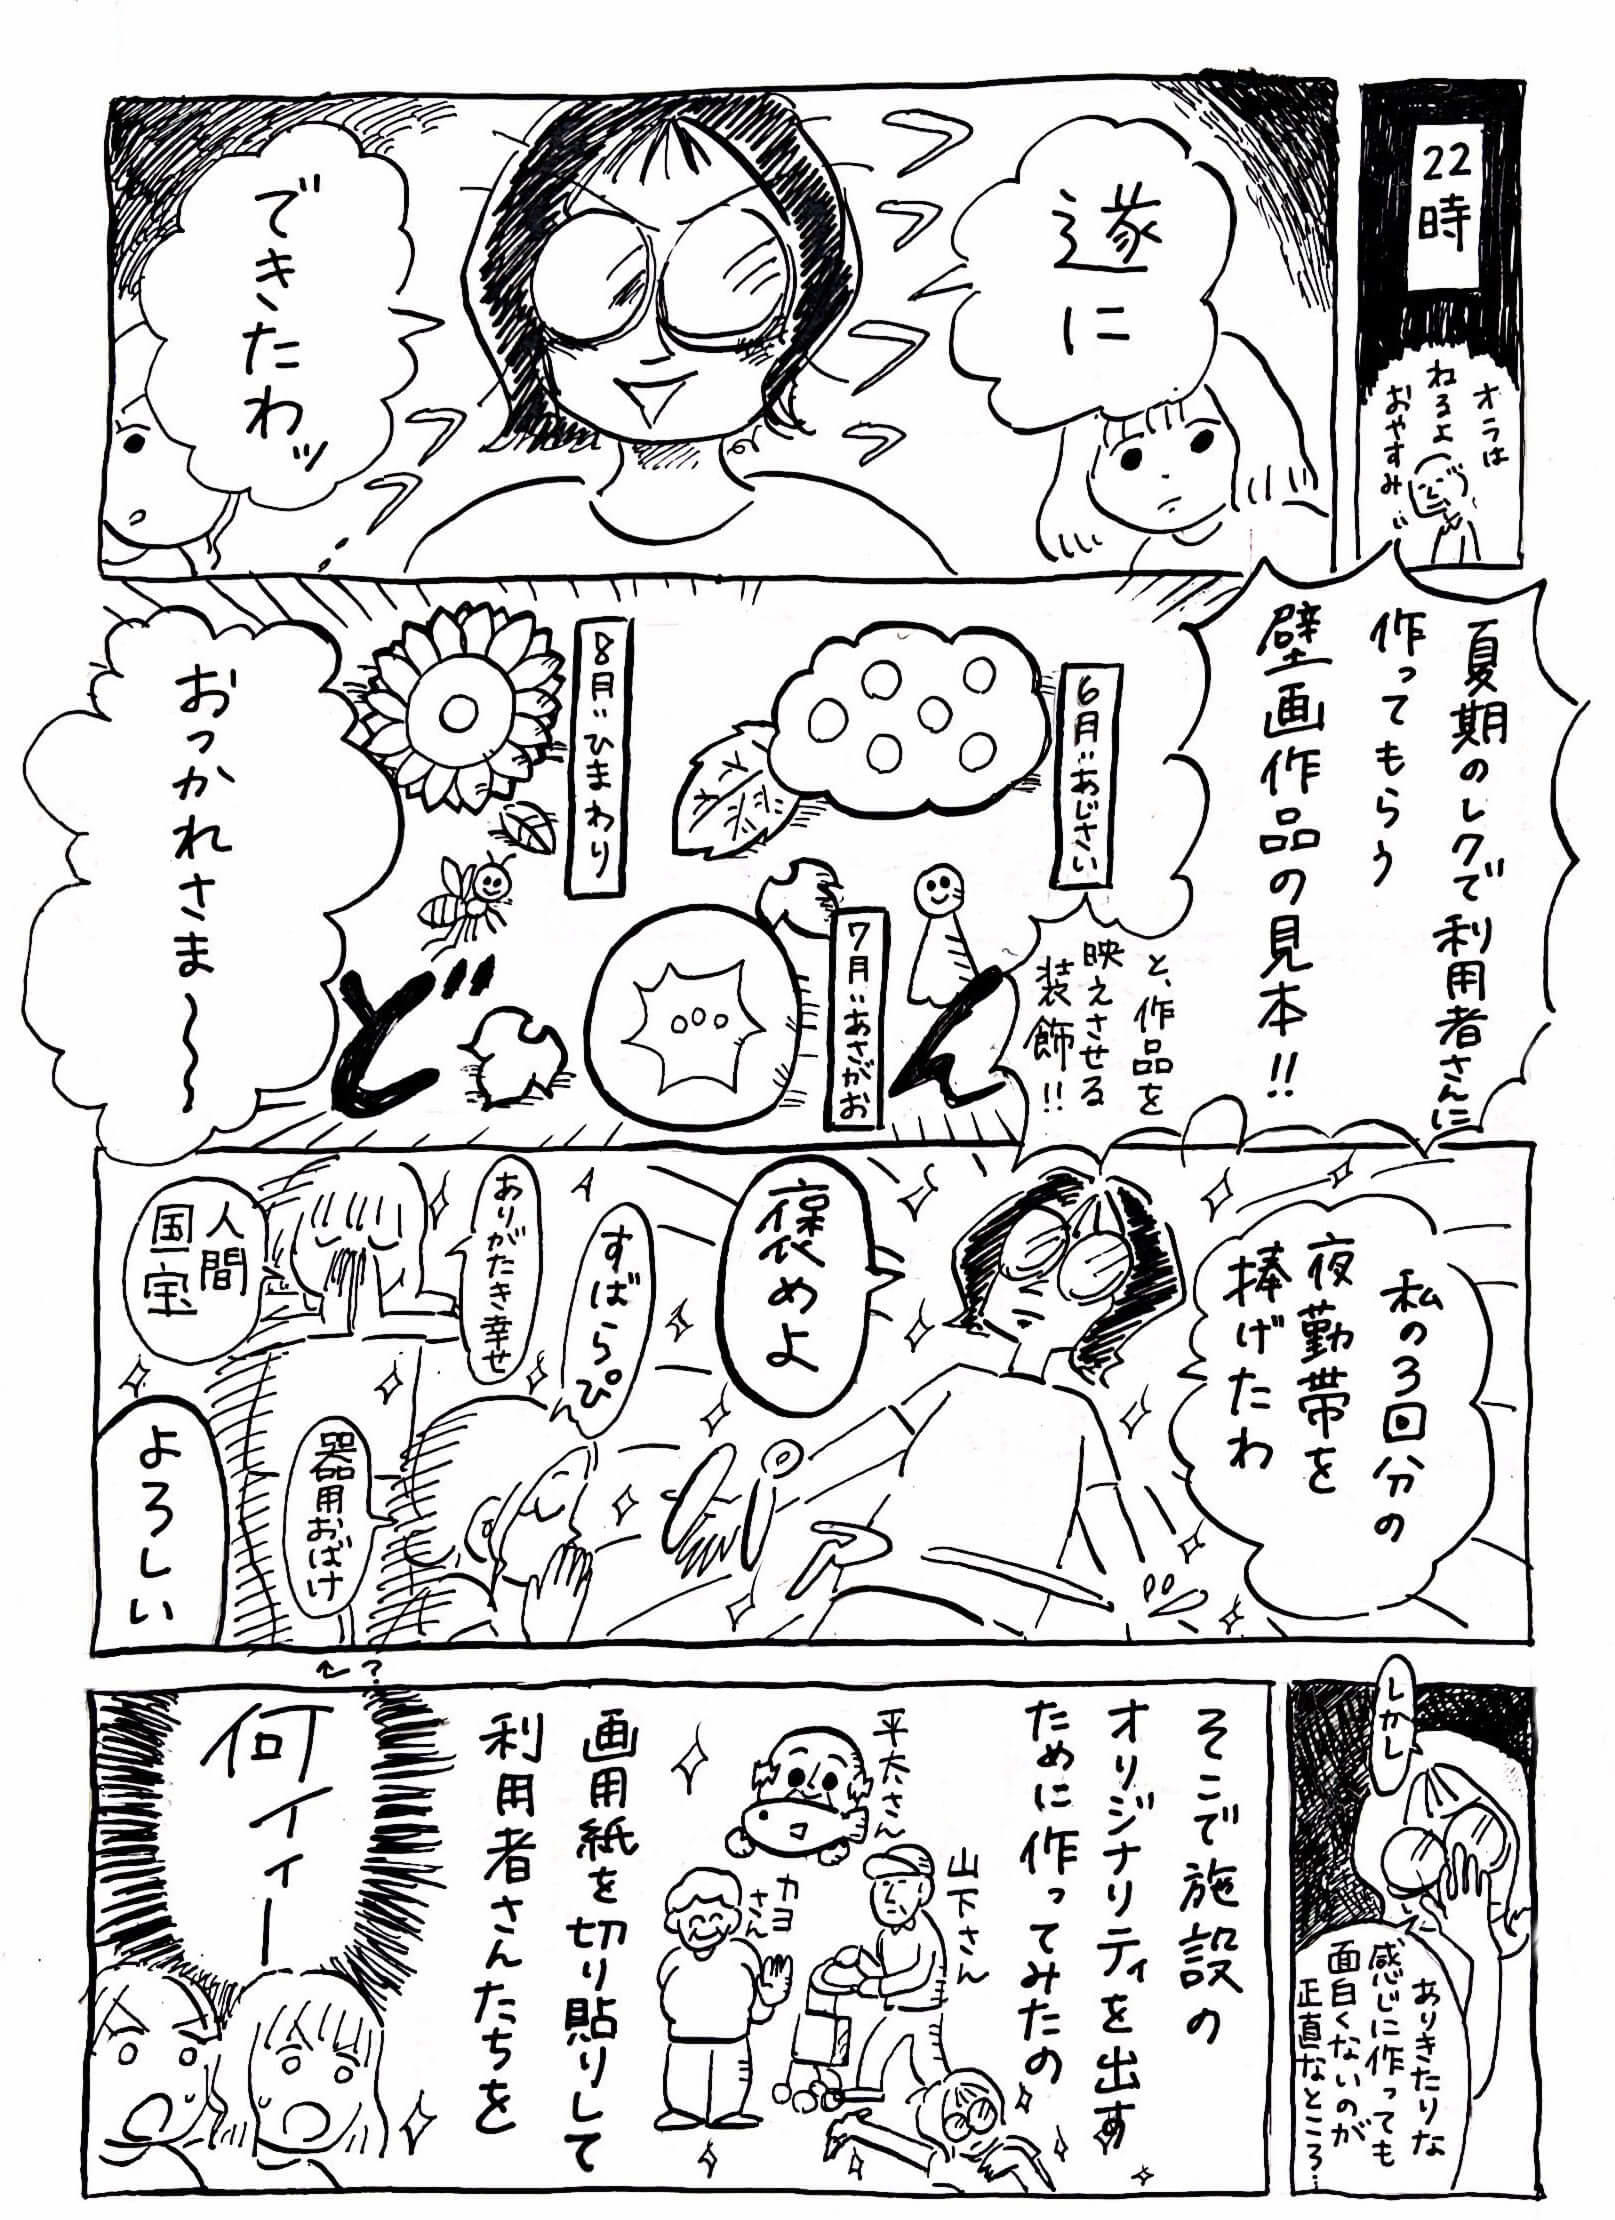 22時
オラは
ねるよ
おやすみ
遂に
できたわッ
夏期のレクで利用者さんに
作ってもらう
壁画作品の見本!!
と、作品を
映えさせる
装飾!!
6月:あじさい
7月:あさがお
8月:ひまわり
どん
おっかれさま〜〜
私の3回分の
夜勤帯を
捧げたわ
褒めよ
すばらぴ
ありがたき幸せ
人間
国宝
器用おばけ
よろしい
しかし
ありきたりな
感じに作っても
面白くないのが
正直なところ…
そこで施設の
オリジナリティを出す
ために作ってみたの
平太さん
山下さん
カヨ
さん
画用紙を切り貼りして
利用者さんたちを
?
何ィィー